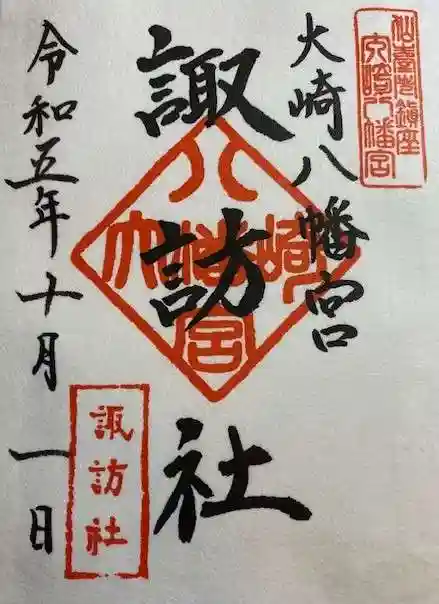 仙臺鎮座
大崎八幡宮
大崎八幡宮
諏訪社
大崎八幡宮
諏訪社
令和五年十月一日